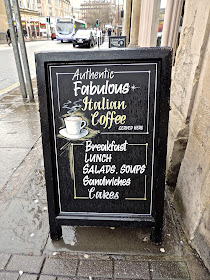 Authentic
Fabulous
Italian
Coffee
SERVED HERE
Breakfast
LUNCH
SALADS, SOUPS
Sandwiches
Cakes